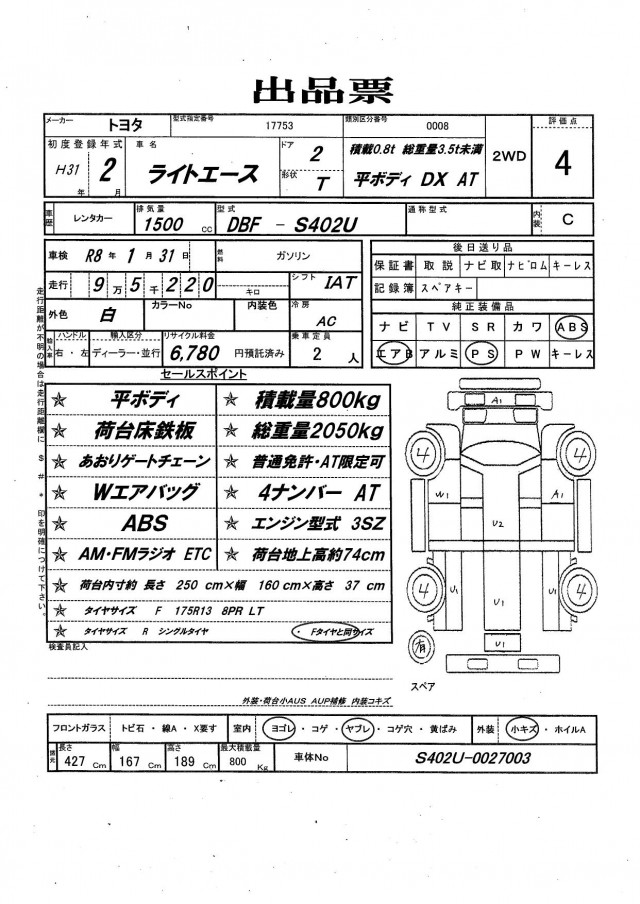 出品票
メーカー トヨタ 型式指定番号 17753 類別区分番号 0008 評価点
初度登録年式 車名 ドア 2 積載0.8t 総重量3.5t未満 2WD 4
H31年 2月 ライトエース 形状 T 平ボディ DX AT
車歴 レンタカー 排気量 1500 cc 型式 DBF - S402U 通称型式 内装 C
車検 R8年 1月 31日 燃料 ガソリン
走行 9万5千220 キロ シフト IAT
外色 白 カラーNo 内装色 冷房 AC
輸入車 ハンドル 右・左 輸入区分 ディーラー・並行 リサイクル料金 6,780 円預託済み 乗車定員 2人
後日送り品
保証書 取説 ナビ取 ナビロム キーレス
記録簿 スペアキー
純正装備品
ナビ TV SR カワ ABS
エアB アルミ PS PW キーレス
セールスポイント
☆ 平ボディ ☆ 積載量800kg
☆ 荷台床鉄板 ☆ 総重量2050kg
☆ あおりゲートチェーン ☆ 普通免許・AT限定可
☆ Wエアバッグ ☆ 4ナンバー AT
☆ ABS ☆ エンジン型式 3SZ
☆ AM・FMラジオ ETC ☆ 荷台地上高約74cm
☆ 荷台内寸約 長さ 250 cm×幅 160cm×高さ 37 cm
☆ タイヤサイズ F 175R13 8PR LT
☆ タイヤサイズ R シングルタイヤ ・Fタイヤと同サイズ
走行距離が不明の場合は走行距離欄に $ # * 印を明確につけて下さい。
A1
4 4
W1 A1
U2
4 4
U1 U1 U1
U1
有
スペア
検査員記入
外装・荷台小AUS AUP補修 内装コキズ
フロントガラス トビ石・線A・X要す 室内 ヨゴレ・コゲ・ヤブレ・コゲ穴・黄ばみ 外装 小キズ・ホイルA
諸元 長さ 427 Cm 幅 167 Cm 高さ 189 Cm 最大積載量 800 Kg 車体No S402U-0027003